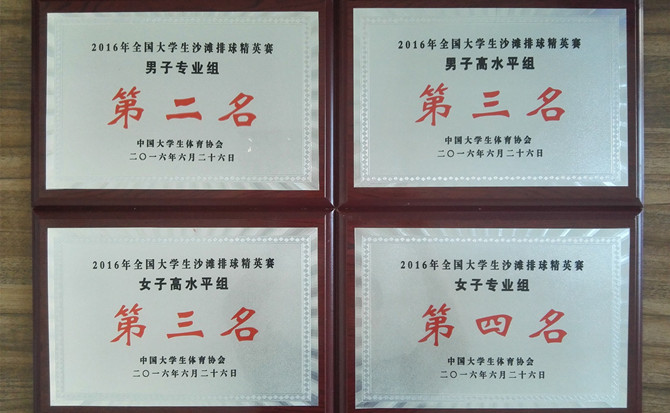 2016年全国大学生沙滩排球精英赛
男子专业组
第二名
中国大学生体育协会
二〇一六年六月二十六日
2016年全国大学生沙滩排球精英赛
男子高水平组
第三名
中国大学生体育协会
二〇一六年六月二十六日
2016年全国大学生沙滩排球精英赛
女子高水平组
第三名
中国大学生体育协会
二〇一六年六月二十六日
2016年全国大学生沙滩排球精英赛
女子专业组
第四名
中国大学生体育协会
二〇一六年六月二十六日